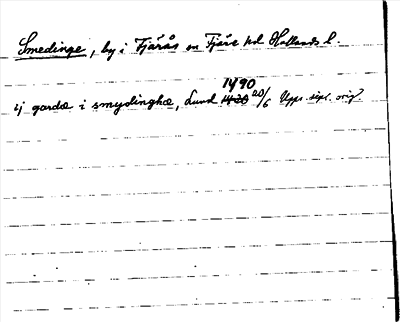 Smedinge, by i Fjärås sn Fjäre hd Hallands l.
1490
ij garda i smydinghæ, Lund 1420 20/6 Upps. dipl. orig.